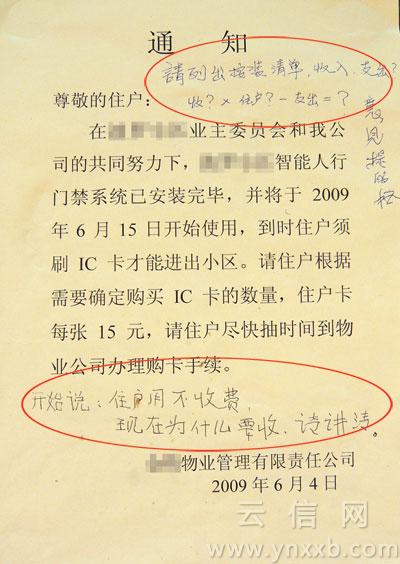 通 知
請列出按装清单，收入、支出？
收？× 住户？－支出＝？
意见提的好
尊敬的住户：
在 业主委员会和我公
司的共同努力下， 智能人行
门禁系统已安装完毕，并将于 2009
年 6 月 15 日开始使用，到时住户须
刷 IC 卡才能进出小区。请住户根据
需要确定购买 IC 卡的数量，住户卡
每张 15 元，请住户尽快抽时间到物
业公司办理购卡手续。
开始说：住户用不收费，
现在为什么要收、请讲清。
物业管理有限责任公司
2009 年 6 月 4 日
云信网
www.ynxxb.com